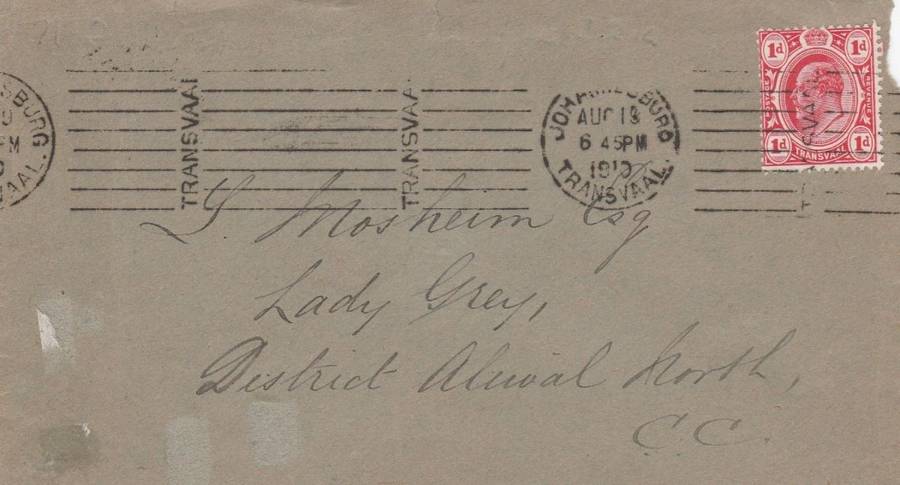 1d 1d
POSTAGE REVENUE
1d TRANSVAAL 1d
JOHANNESBURG
AUG 19
6 45PM
1910
TRANSVAAL
TRANSVAAL TRANSVAA
SBURG
PM
VAAL.
L Mosheim Esq
Lady Grey,
District Aliwal North,
C.C.